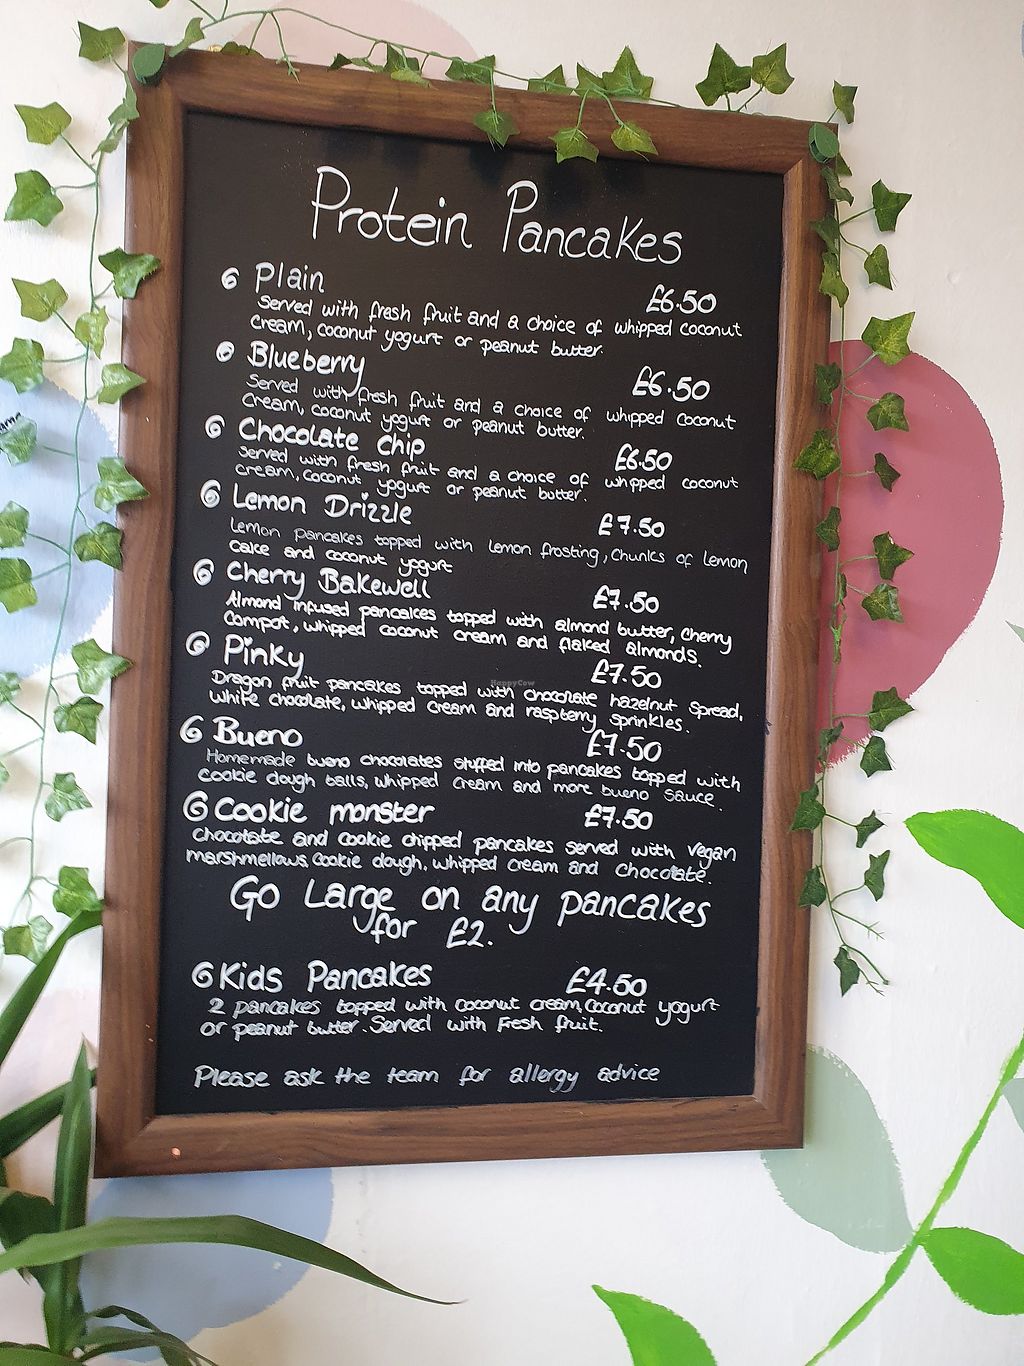 Protein Pancakes
Plain £6.50
Served with fresh fruit and a choice of whipped coconut
cream, coconut yogurt or peanut butter.
Blueberry £6.50
Served with fresh fruit and a choice of whipped coconut
cream, coconut yogurt or peanut butter.
Chocolate chip £6.50
Served with fresh fruit and a choice of whipped coconut
cream, coconut yogurt or peanut butter.
Lemon Drizzle £7.50
Lemon pancakes topped with lemon frosting, chunks of lemon
cake and coconut yogurt
Cherry Bakewell £7.50
Almond infused pancakes topped with almond butter, cherry
compot, whipped coconut cream and flaked almonds.
Pinky £7.50
Dragon fruit pancakes topped with chocolate hazelnut spread,
white chocolate, whipped cream and raspberry sprinkles.
Bueno £7.50
Homemade bueno chocolates stuffed into pancakes topped with
cookie dough balls, whipped cream and more bueno sauce.
Cookie monster £7.50
chocolate and cookie chipped pancakes served with vegan
marshmellows, cookie dough, whipped cream and chocolate.
Go Large on any pancakes
for £2.
Kids Pancakes £4.50
2 pancakes topped with coconut cream, coconut yogurt
or peanut butter. Served with Fresh fruit.
Please ask the team for allergy advice
HappyCow